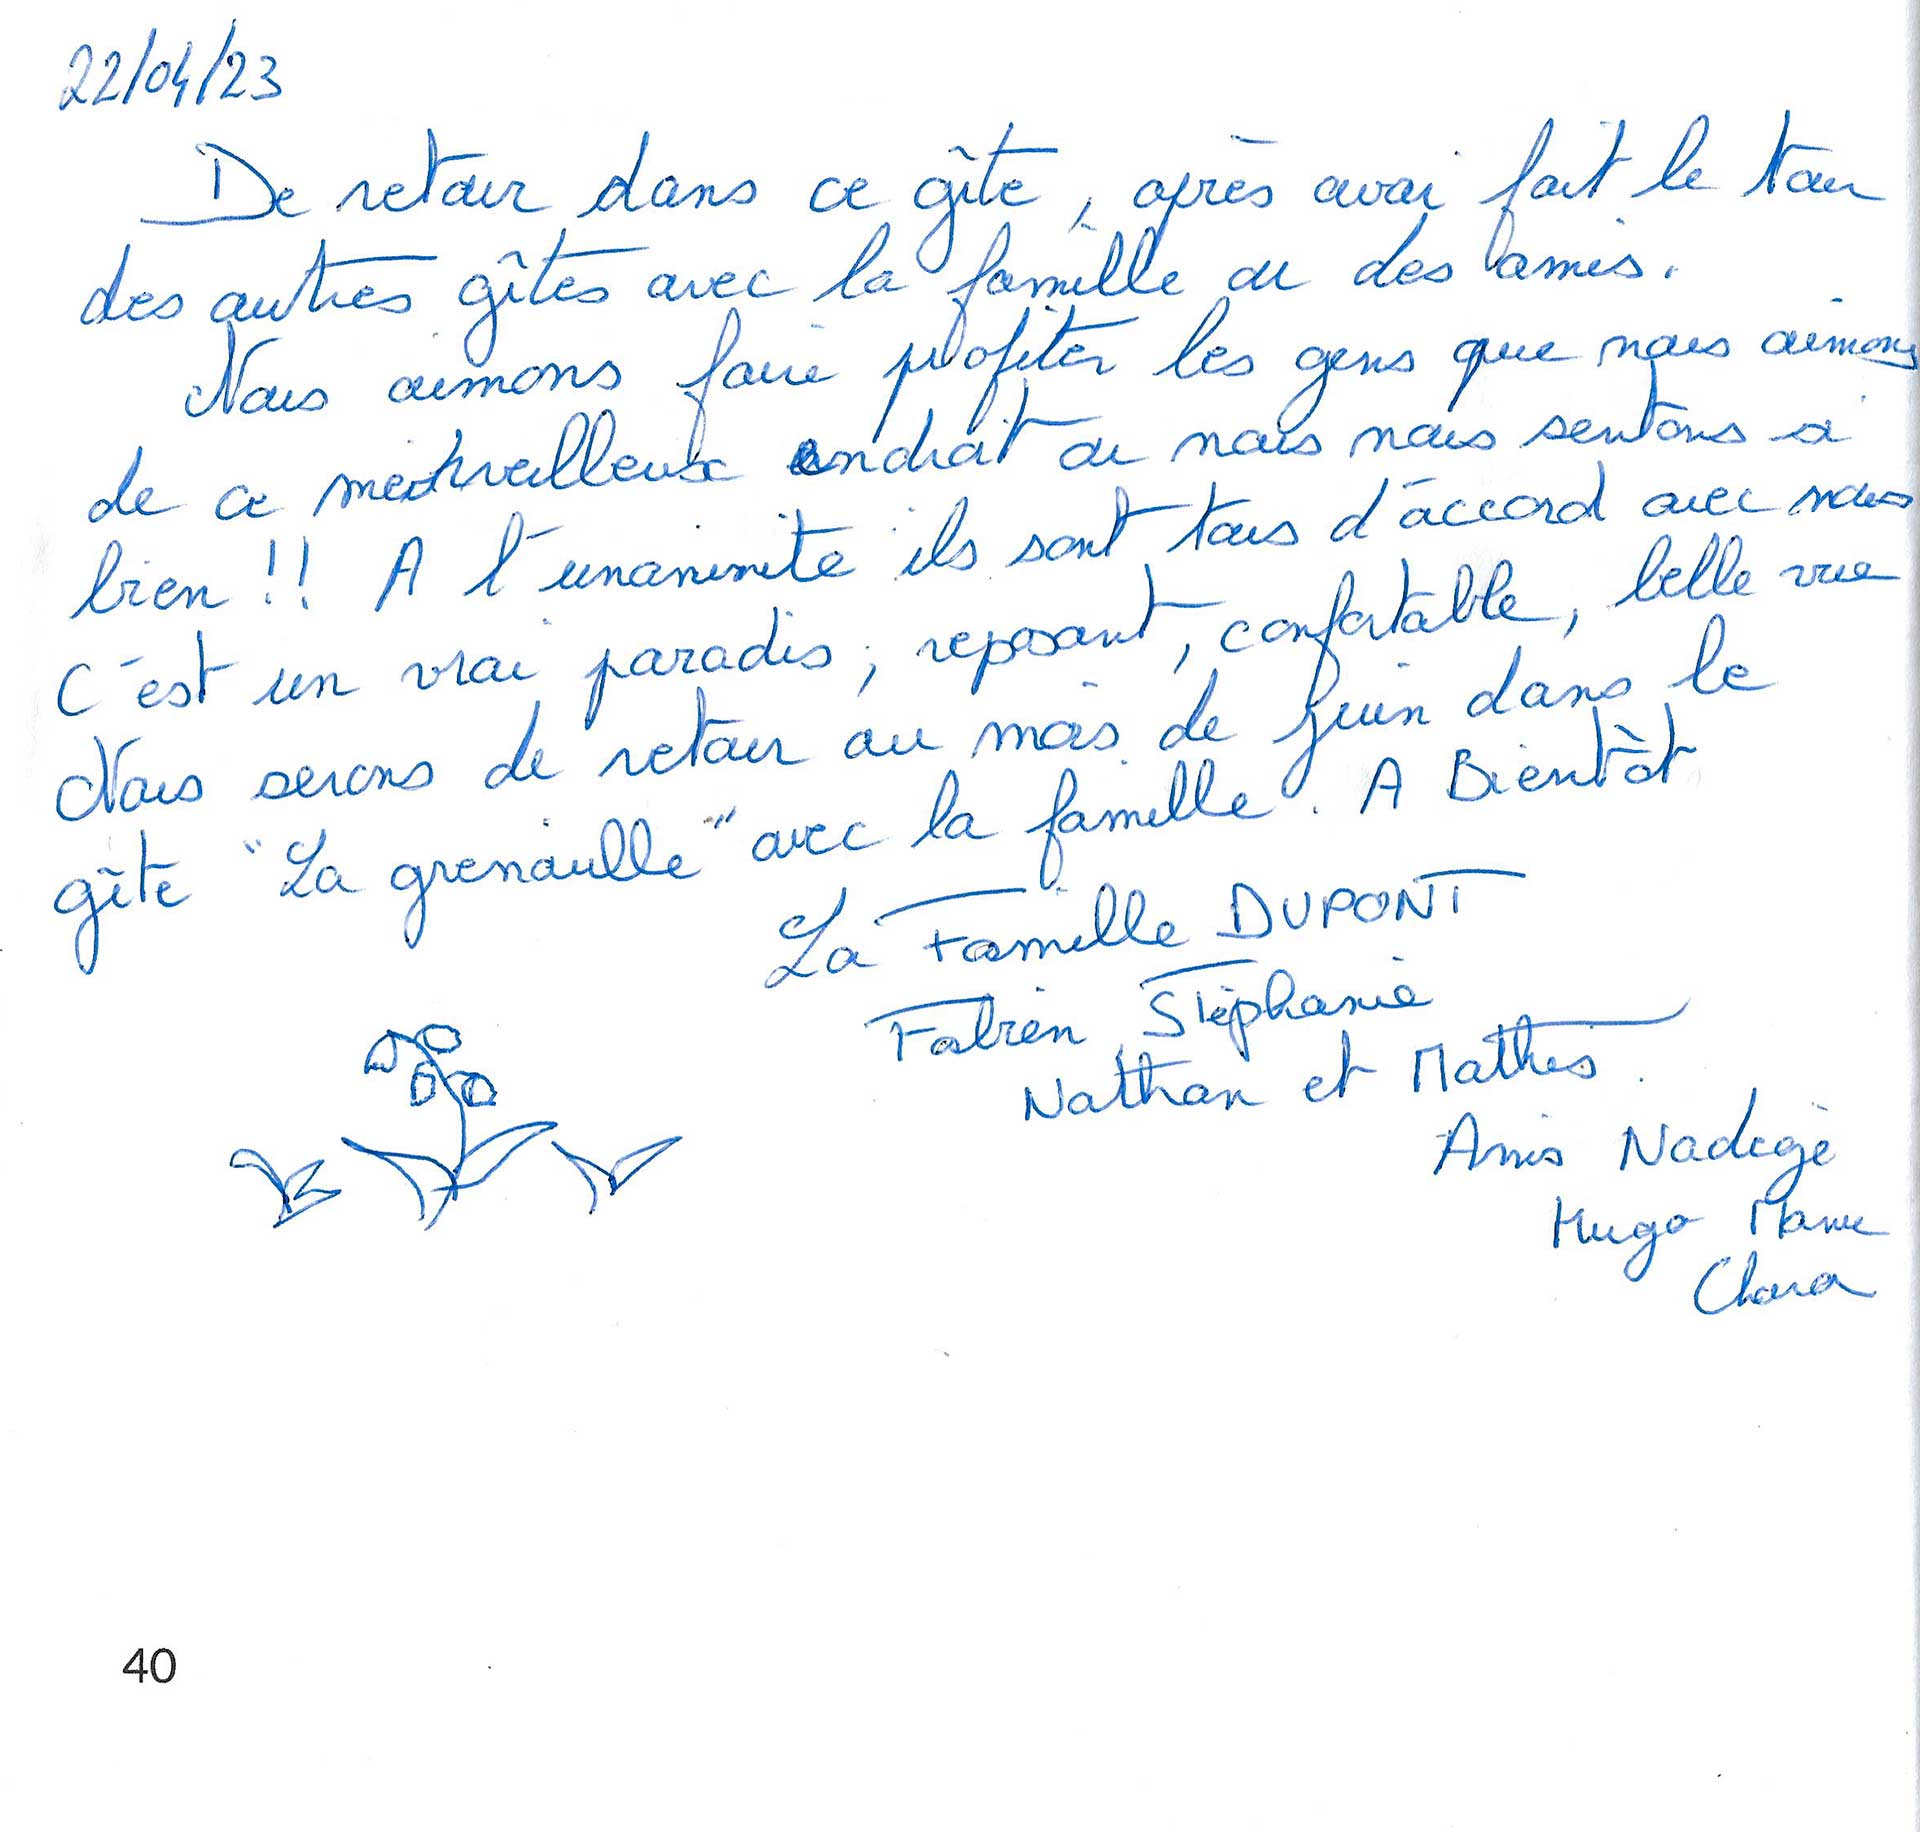 22/04/23
De retour dans ce gîte, après avoir fait le tour
des autres gîtes avec la famille ou des amis.
Nous aimons faire profiter les gens que nous aimons
de ce merveilleux endroit ou nous nous sentons si
bien !! A l'unanimité ils sont tous d'accord avec nous
C'est un vrai paradis, reposant, confortable, belle vue
Nous serons de retour au mois de juin dans le
gîte "La grenouille" avec la famille. A Bientôt
La Famille DUPONT
Fabien, Stéphanie
Nathan et Mathis.
Amis Nadège
Hugo Manu
Clara
40